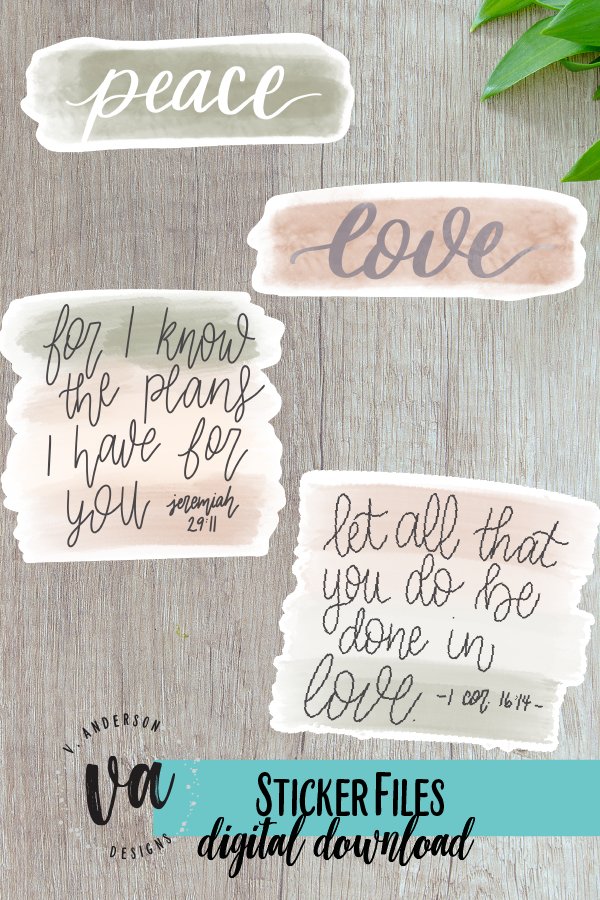 peace
love
for I know
the plans
I have for
you jeremiah
29:11
let all that
you do be
done in
love. -1 cor. 16:14-
V. ANDERSON
va
DESIGNS
STICKER FILES
digital download